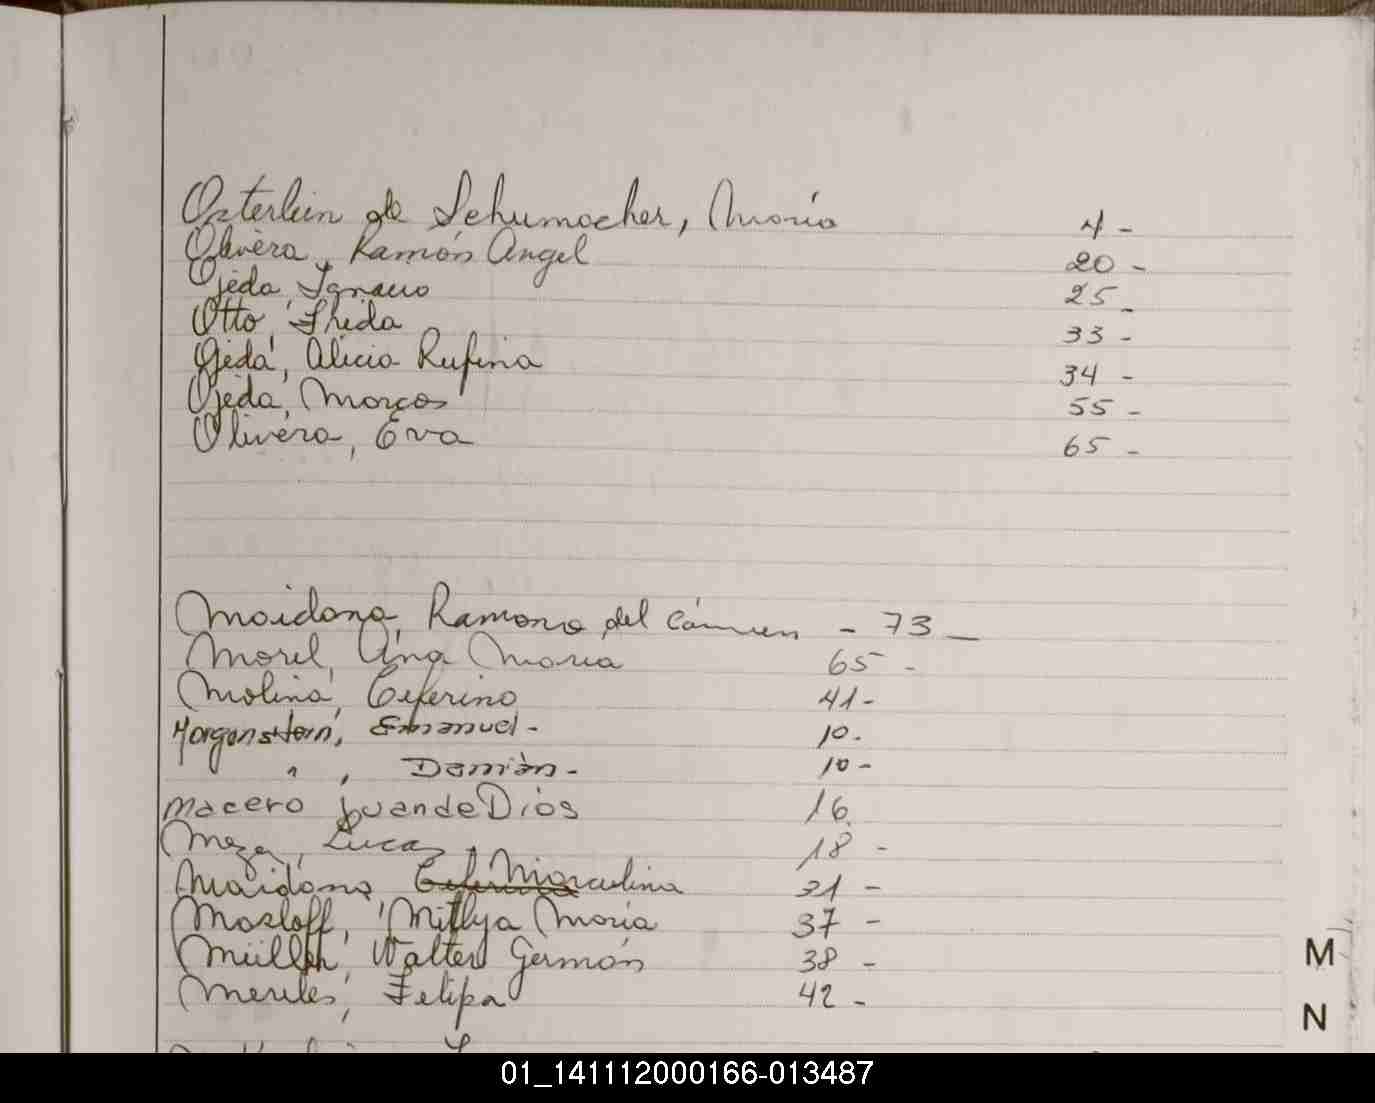 Osterlein de Schumacher, María 4 -
Olivera, Ramón Angel 20 -
Ojeda, Ignacio 25 -
Otto, Frida 33 -
Ojeda, Alicia Rufina 34 -
Ojeda, Marcos 55 -
Olivera, Eva 65 -
Maidana, Ramona del Cármen - 73 -
Morel, Ana María 65 -
Molina, Ceferino 41 -
Morgenstern, Emanuel - 10.
" , Damián - 10 -
Macero Juan de Dios 16.
Meza, Lucas 18 -
Maidana, Marculina 31 -
Masloff, Mitlya María 37 -
Müller, Walter Germán 38 -
Meriles, Felipa 42 -
M
N
01_141112000166-013487